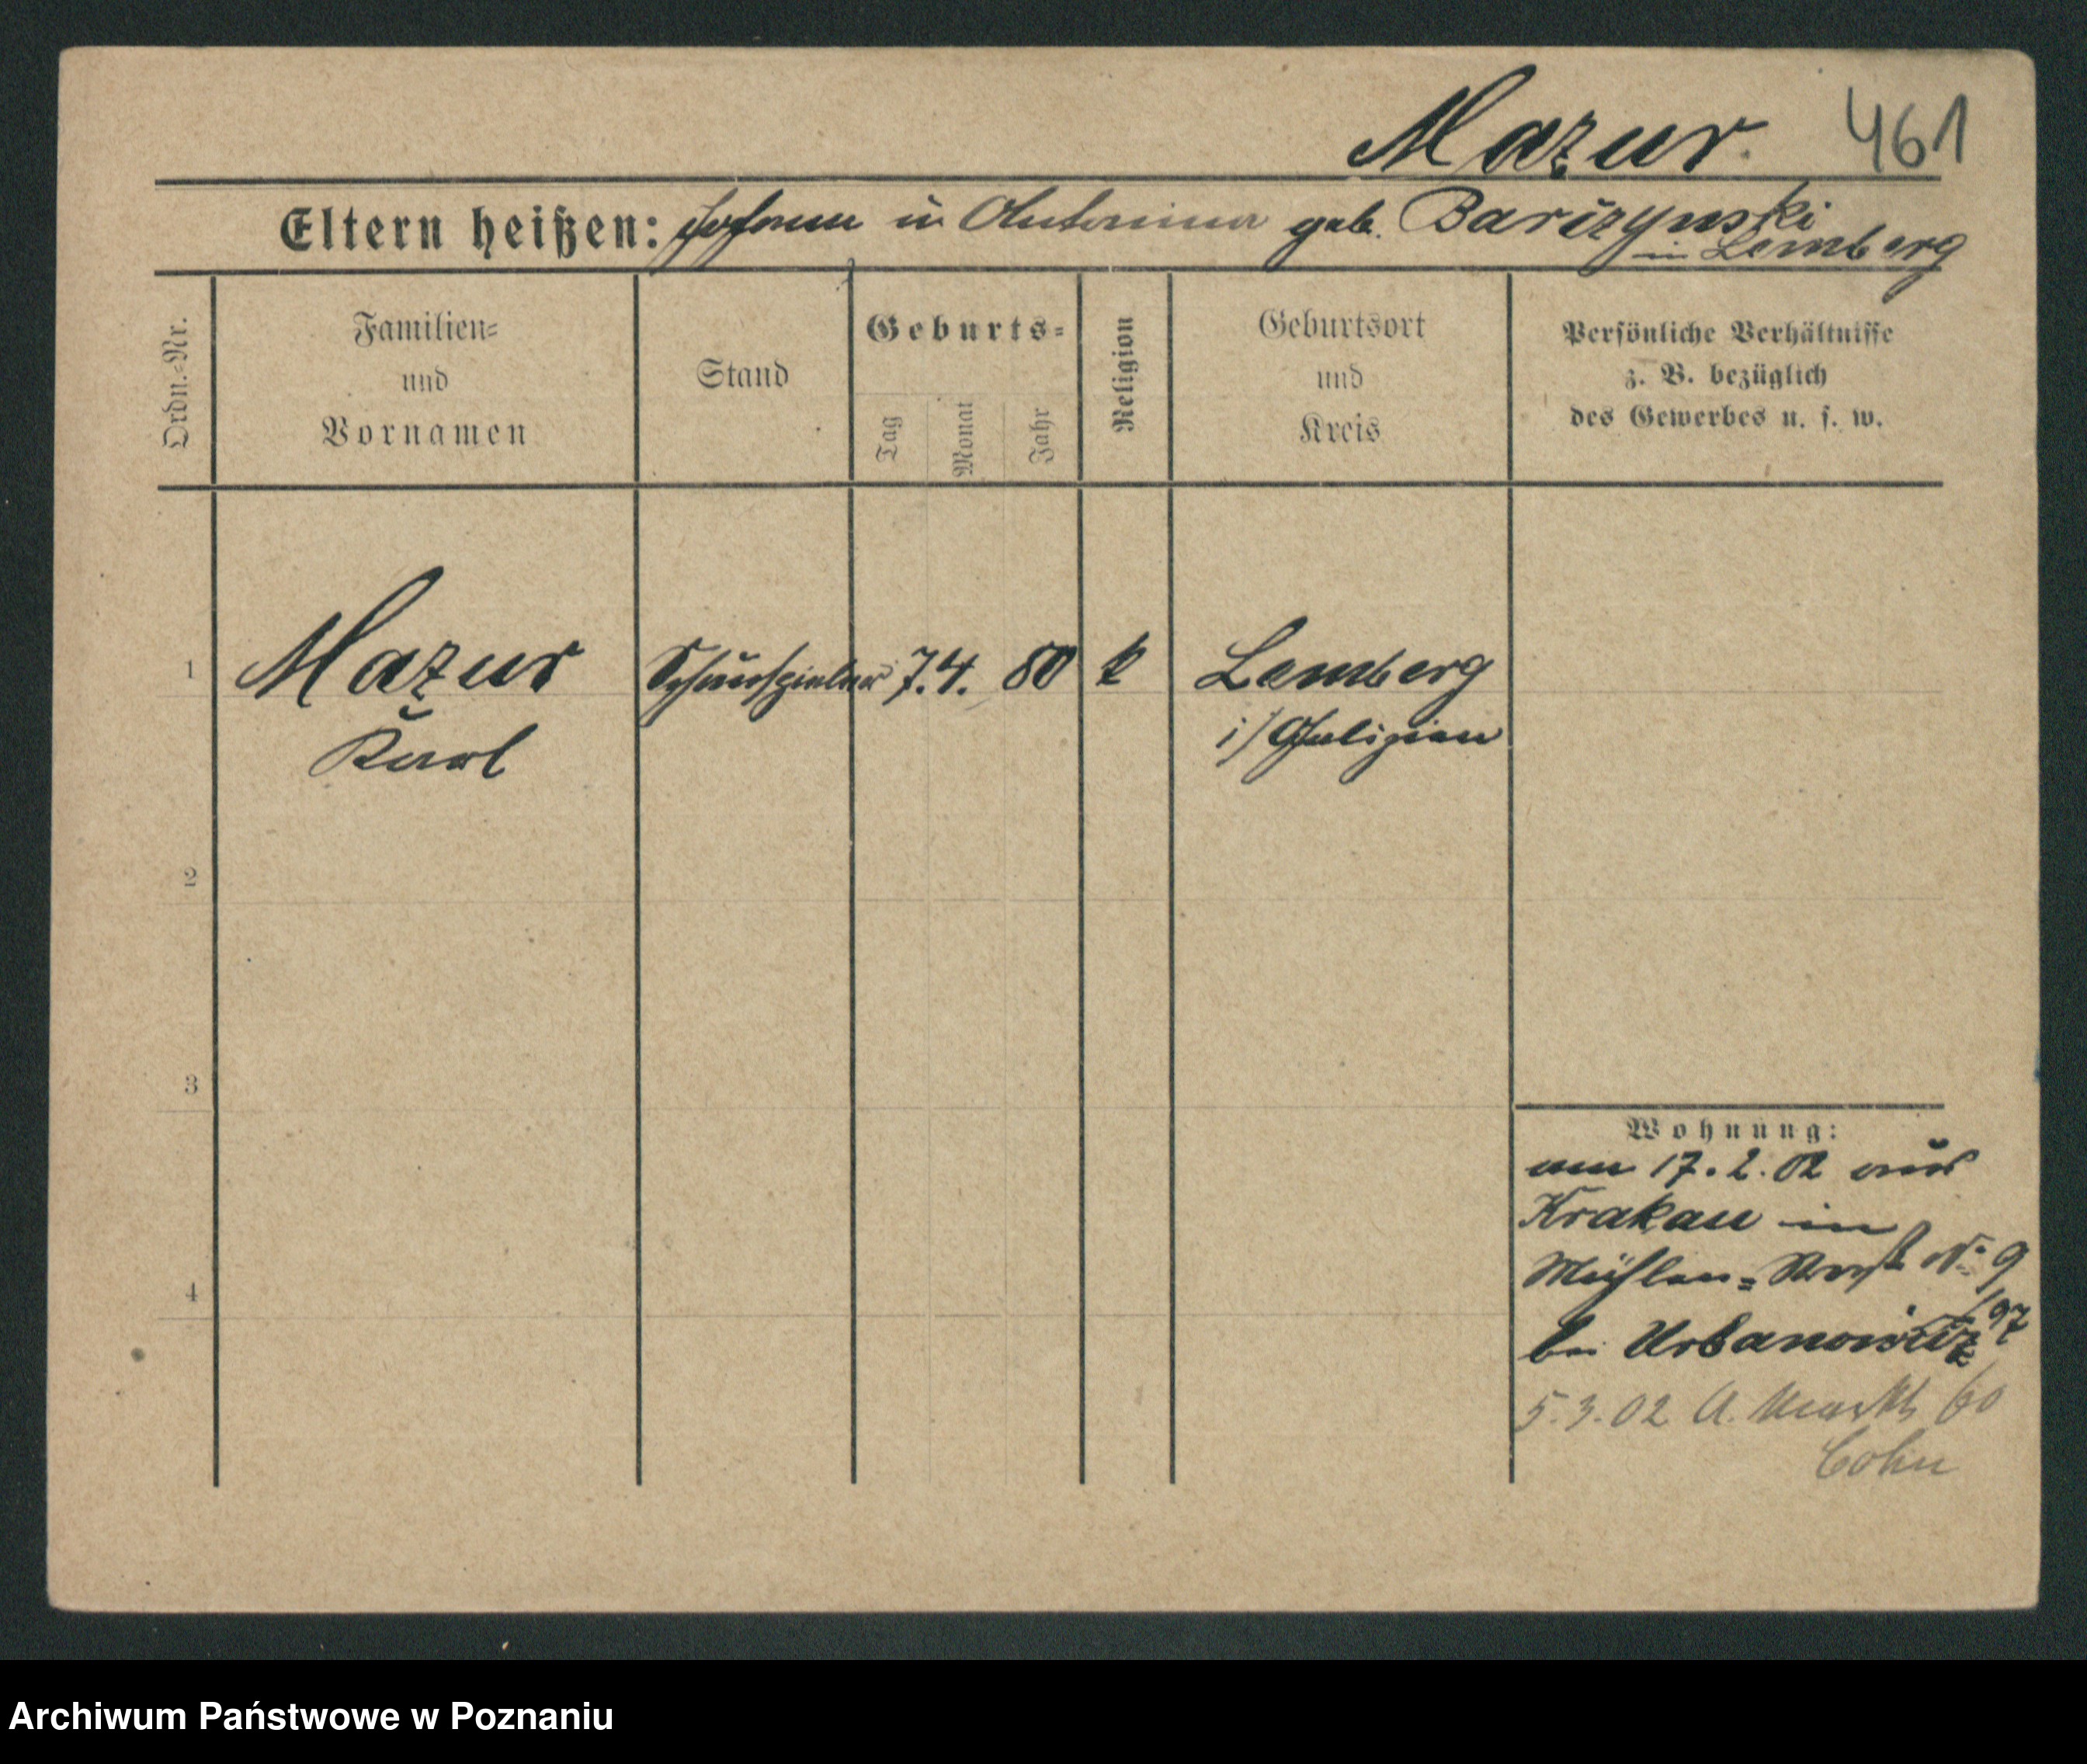 Mazur. 461
Eltern heißen: Johann u Antonina geb. Barizynski
in Lemberg
Ordn.-Nr.
Familien-
und
Vornamen
Stand
Geburts-
Tag
Monat
Jahr
Religion
Geburtsort
und
Kreis
Persönliche Verhältnisse
z. B. bezüglich
des Gewerbes u. s. w.
1 Mazur Schauspieler 7. 4. 80 k Lemberg
Karl i/Galizien
2
3
4
Wohnung:
am 17. 2. 02 aus
Krakau in
Mühlen= No 9
/97
bei Urbanowicz
5.3.02 A. Markt 60
Cohn
Archiwum Państwowe w Poznaniu